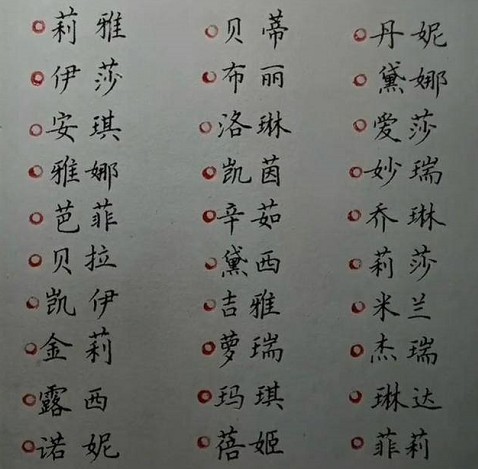 莉雅 贝蒂 丹妮
伊莎 布丽 黛娜
安琪 洛琳 爱莎
雅娜 凯茵 妙瑞
芭菲 辛茹 乔琳
贝拉 黛西 莉莎
凯伊 吉雅 米兰
金莉 萝瑞 杰瑞
露西 玛琪 琳达
诺妮 蓓姬 菲莉